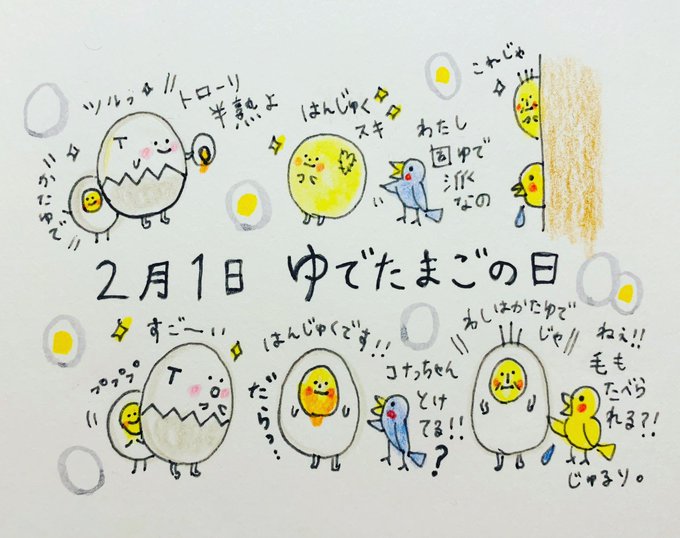 ツルっ
トローリ
半熟よ
かたゆで
T
はんじゅく
スキ
わたし
固ゆで
派
なの
これじゃ
2月1日 ゆでたまごの日
すご〜い
プププ
T
はんじゅくです!!
だらっ…
コナっちゃん
とけ
てる!!
?
わしはかたゆで
じゃ
ねぇ!!
毛も
たべら
れる?!
じゅるり。